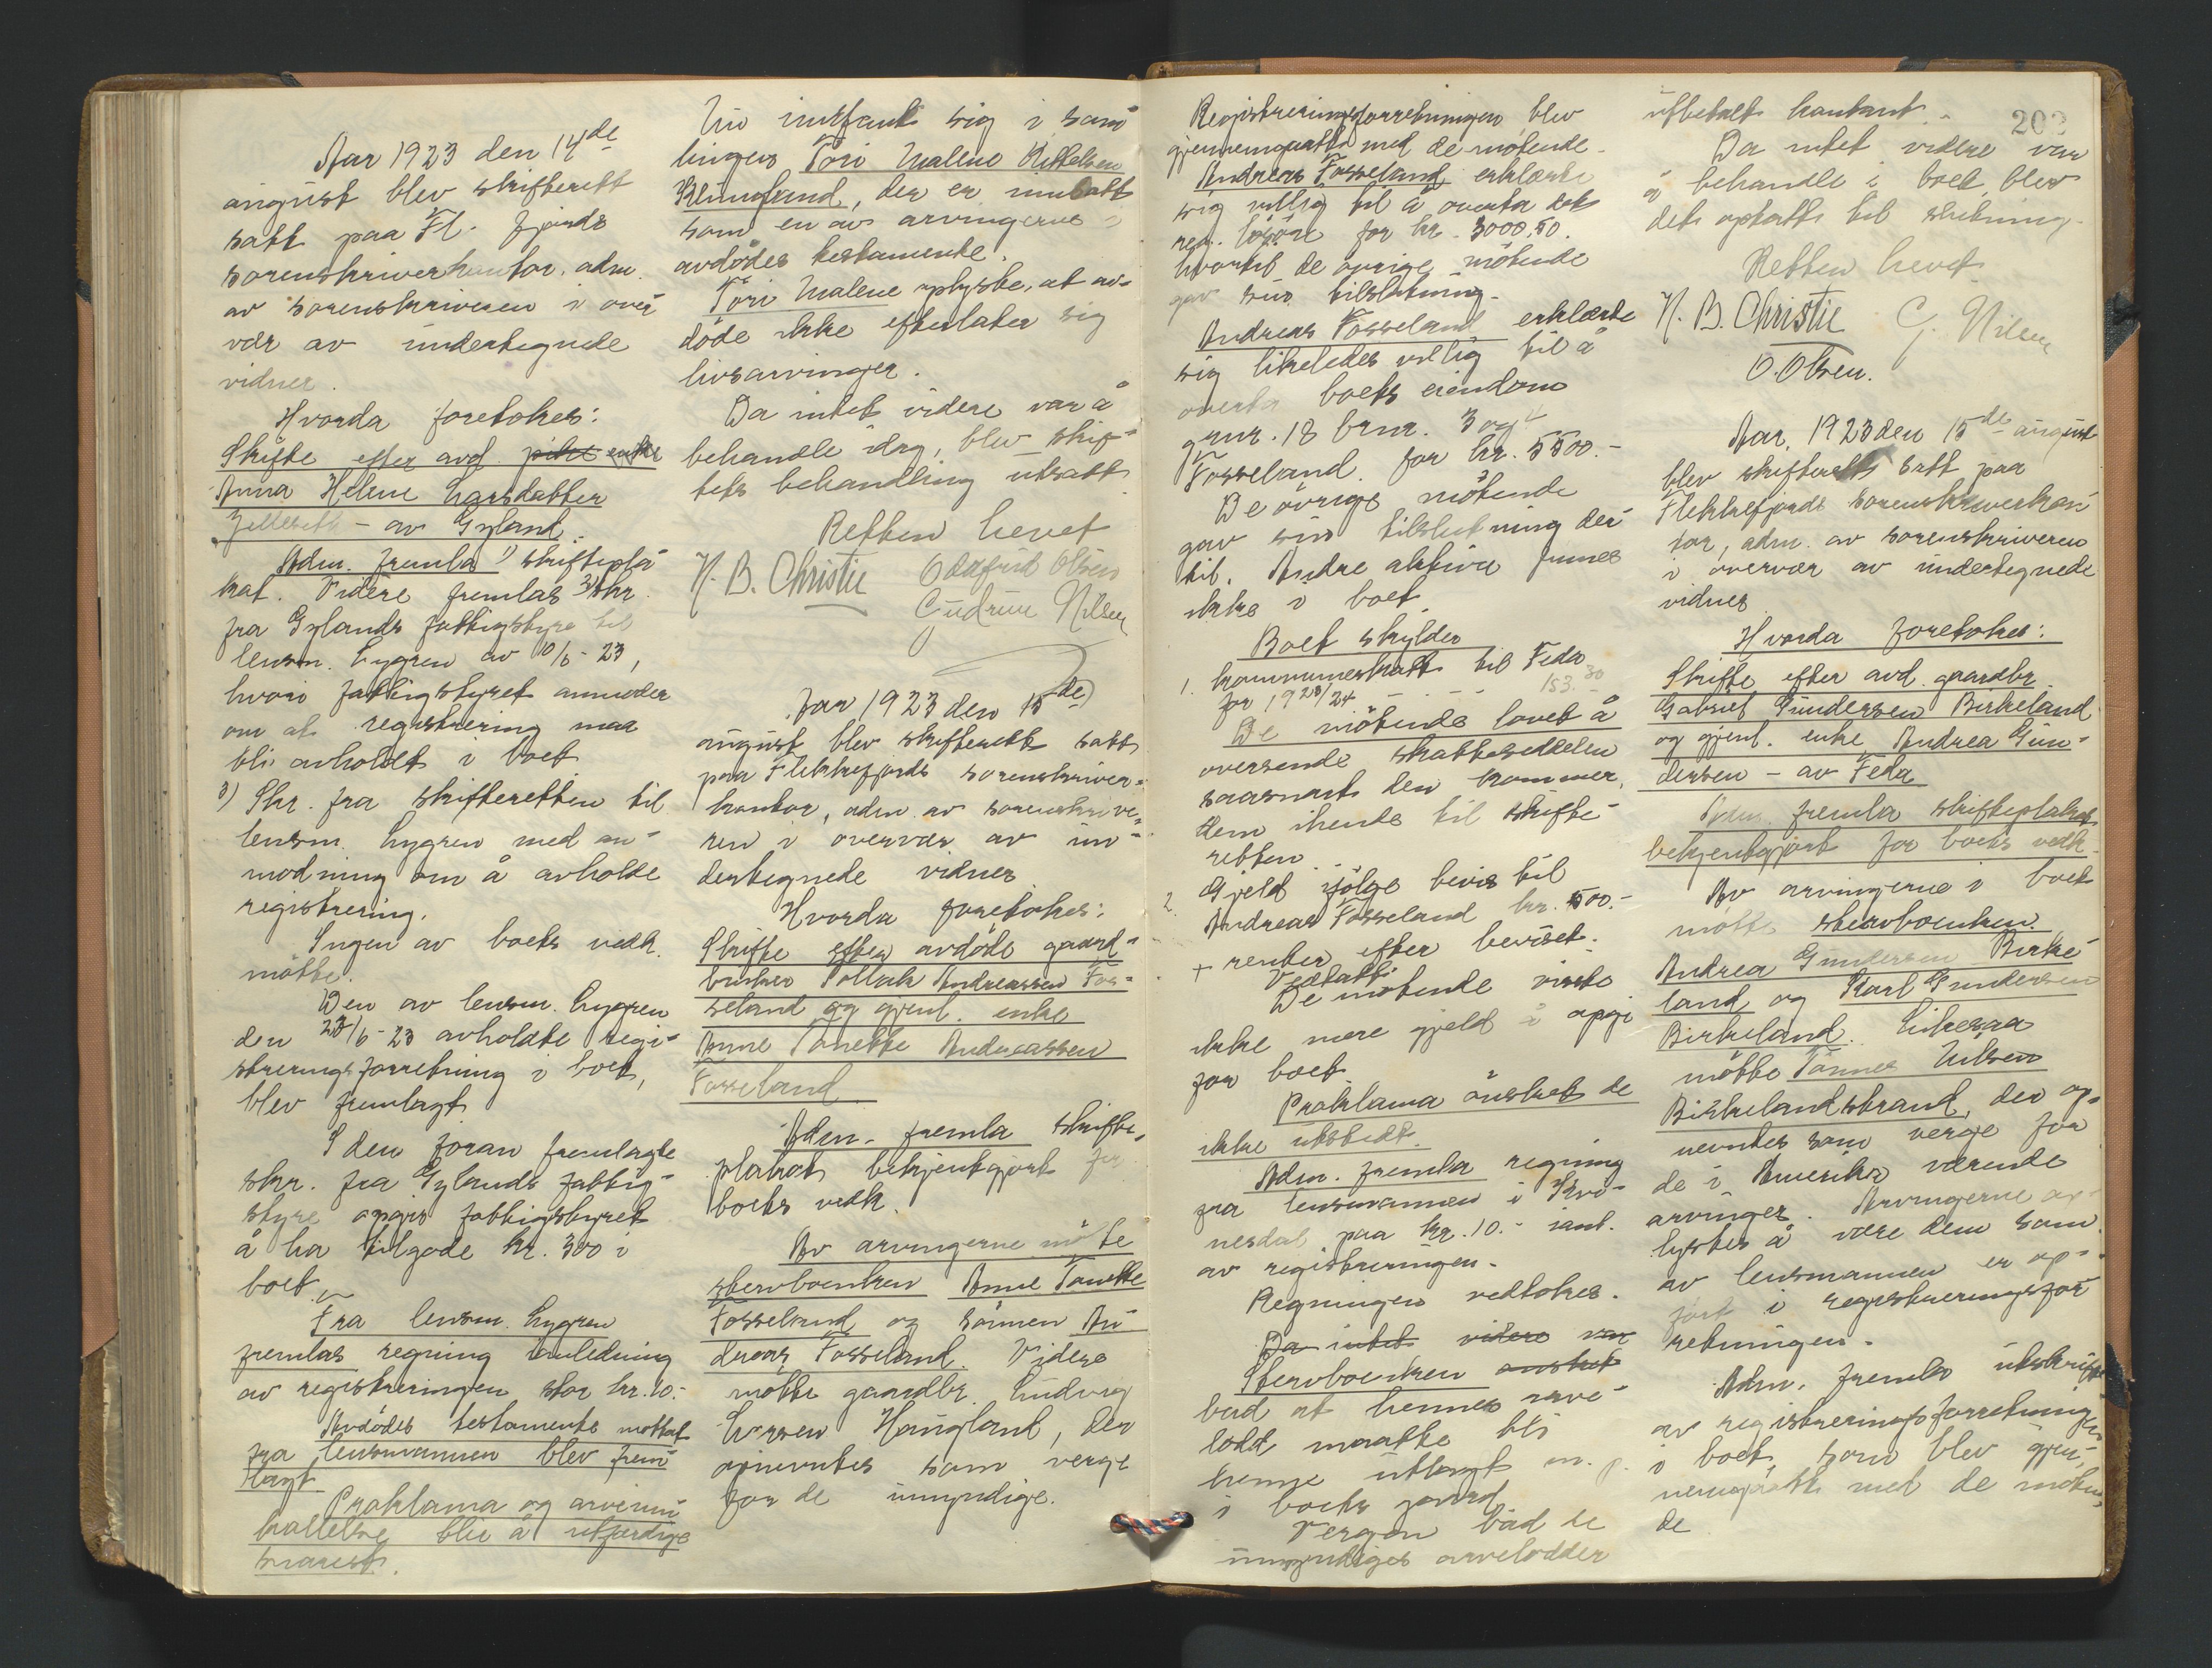 Aar 1923 den 14de
august blev skifterett
satt paa Fl. fjords
sorenskriverkontor, adm.
av sorenskriveren i over
vær av undertegnede
vidner.
Hvorda foretokes:
Skifte efter avd. pike enke
Anna Helene Larsdatter
- av Gyland.
Adm. fremla 1) skiftepla
kat. Videre fremlas 2) skr.
fra Gylands fattigstyre til
lensm. Lygren av 10/6 - 23,
hvori fattigstyret anmoder
om at registrering maa
bli avholdt i boet
3) Skr. fra skifteretten til
lensm. Lygren med an-
modning om å avholde
registrering.
Ingen av boets vedk.
møtte.
Den av lensm. Lygren
den 23/6 - 23 avholdte regi-
streringsforretning i boet,
blev fremlagt
I den foran fremlagte
skr. fra Gylands fattig-
styre opgis fattigstyret
å ha tilgode kr. 300 i
boet.
Fra lensm. Lygren
fremlas regning anledning
av registreringen stor kr. 10.-
Avdødes testamente mottat
fra lensmannen blev frem
lagt.
Proklama og arveinn
kallelse blir å utferdige
snarest.
Nu innfant sig i sam
lingen Tori Malene Kittelsen
Klungland, der er innsatt
som en av arvingerne i
avdødes testamente.
Tori Malene oplyste, at av-
døde ikke efterlater sig
livsarvinger.
Da intet videre var å
behandle idag, blev skif-
tets behandling utsatt.
Retten hevet
H. B. Christie Oddfrid Olsen
Gudrun Nilsen
Aar 1923 den 15de
august blev skifterett satt
paa Flekkefjords sorenskriver-
kontor, adm. av sorenskrive-
ren i overvær av un-
dertegnede vidner
Hvorda foretokes:
Skifte efter avdøde gaard-
bruker Tollak Andreassen Fos-
seland og gjenl. enke
Anne Tonette Andreassen
Fosseland.
Adm. fremla skifte-
plakat bekjentgjort for
boets vedk.
Av arvingerne møtte
stervboenken Anne Tonette
Fosseland og sønnen An
dreas Fosseland. Videre
møtte gaardbr. Ludvig
Larsen Haugland, der
opnevntes som verge
for de umyndige.
Registreringsforretningen blev
gjennemgaatt med de møtende.
Andreas Fosseland erklærte
sig villig til å overta det
reg. løsøre for kr. 3000,50.
hvortil de øvrige møtende
gav sin tilslutning.
Andreas Fosseland erklærte
sig likeledes villig til å
overta boets eiendom
grnr. 18 brnr. 3 og 4
Fosseland for kr. 5500.-
De øvrige møtende
gav sin tilslutning der
til. Andre aktiva finnes
ikke i boet.
Boet skylder
1. kommuneskatt til Feda
for 1923/24 153.30
De møtende lovet å
oversende skatteseddelen
saasnart den kommer
dem ihende til skifte-
retten.
2. Gjeld ifølge bevis til
Andreas Fosseland kr. 500.-
+ renter efter beviset.
Vedtatt.
De møtende visste
ikke mere gjeld å opgi
for boet
Proklama ønsket de
ikke utstedt.
Adm. fremla regning
fra lensmannen i Kvi-
nesdal paa kr. 10.- i anl.
av registreringen.
Regningen vedtokes.
Da intet videre var
Stervboenken ønsket
bad at hennes arve-
lodd maatte bli
henne utlagt m. p.
i boets jord
Vergen bad de
umyndiges arvelodder
203
utbetalt kontant.
Da intet videre var
å behandle i boet, blev
det optatt til slutning.
Retten hevet
H. B. Christie G. Nilsen
O. Olsen.
Aar 1923 den 15de august
blev skifterett satt paa
Flekkefjords sorenskriverkon
tor, adm. av sorenskriveren
i overvær av undertegnede
vidner
Hvorda foretokes:
Skifte efter avd. gaardbr.
Gabriel Gundersen Birkeland
og gjenl. enke Andrea Gun-
dersen - av Feda
Adm. fremla skifteplakat
bekjentgjort for boets vedk.
Av arvingerne i boet
møtte stervboenken
Andrea Gundersen Birke
land og Karl Gundersen
Birkeland. Likesaa
møtte Tønnes Nilsen
Birkelandstrand, der op-
nevntes som verge for
de i Amerika værende
arvinger. Arvingerne op-
lystes å være dem som
av lensmannen er op-
ført i registreringsfor
retningen.
Adm. fremla utskrift
av registreringsforretningen
i boet, som blev gjen-
nemgaatt med de møten-
de